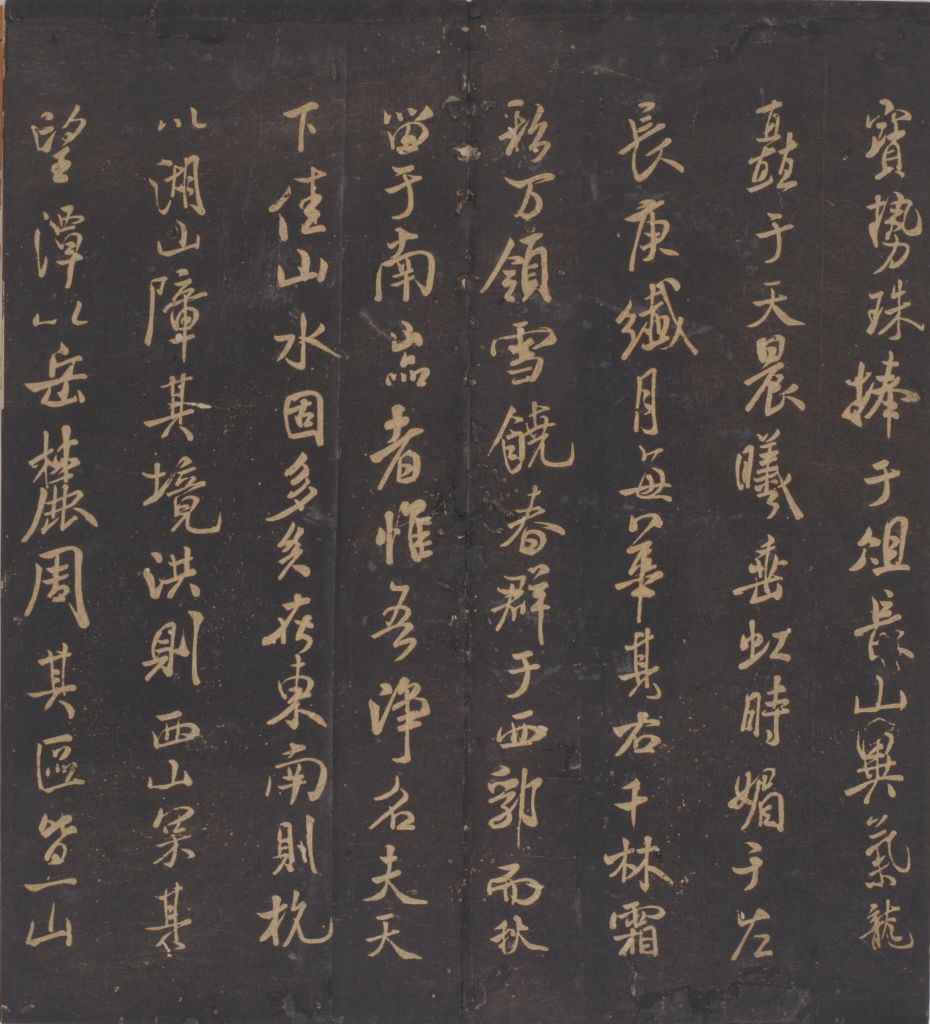 寶勢珠捧于俎長山異氣龍
矗于天晨曦垂虹時媚于左
長庚纖月每華其右千林霜
彩万領雪饒春群于西郭而秋
留于南者惟吾淨名夫天
下佳山水固多矣在東南則杭
以湖山障其境洪則西山累其
望潭以岳麓周其區皆一山